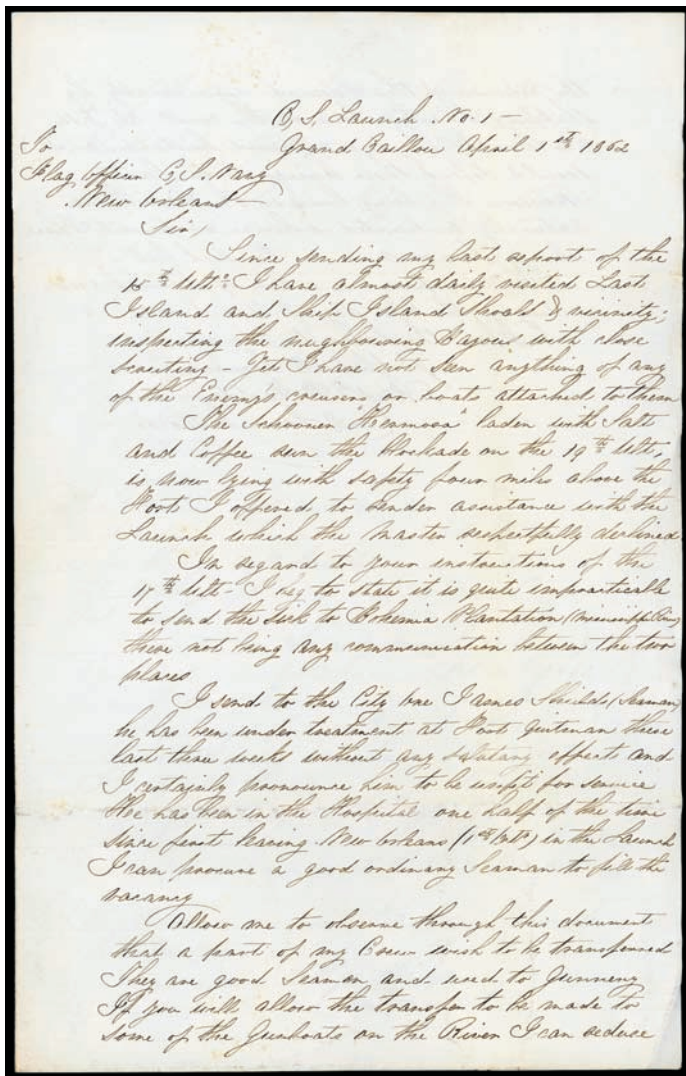 C, S, Launch No. 1 –
Grand Caillou April 1st 1862
To
Flag Officer C, S, Navy
New Orleans –
Sir,
Since sending my last report of the
15th Ulto I have almost daily visited Last
Island and Ship Island Shoals & vicinity;
inspecting the neighbouring Bayous with close
scrutiny – Yet I have not seen anything of any
of the Enemy's cruisers or boats attached to them
The Schooner "Hermosa" laden with Salt
and Coffee run the blockade on the 19th Ult,
is now lying with safety four miles above the
Fort I offered to render assistance with the
Launch which the Master respectfully declined.
In regard to your instructions of the
17th Ult – I beg to state it is quite impracticable
to send the sick to Bohemia Plantation (Mississippi River)
there not being any communication between the two
places
I send to the City one James Shields (Seaman)
he has been under treatment at Fort Quitman these
last three weeks without any salutary effects and
I certainly pronounce him to be unfit for service
He has been in the Hospital one half of the time
since first leaving New Orleans in the Launch
I can procure a good ordinary Seaman to fill the
vacancy
Allow me to observe through this document
that a part of my Crew wish to be transferred
They are good Seamen and used to Gunnery
If you will allow the transfer to be made to
some of the Gunboats on the River I can reduce